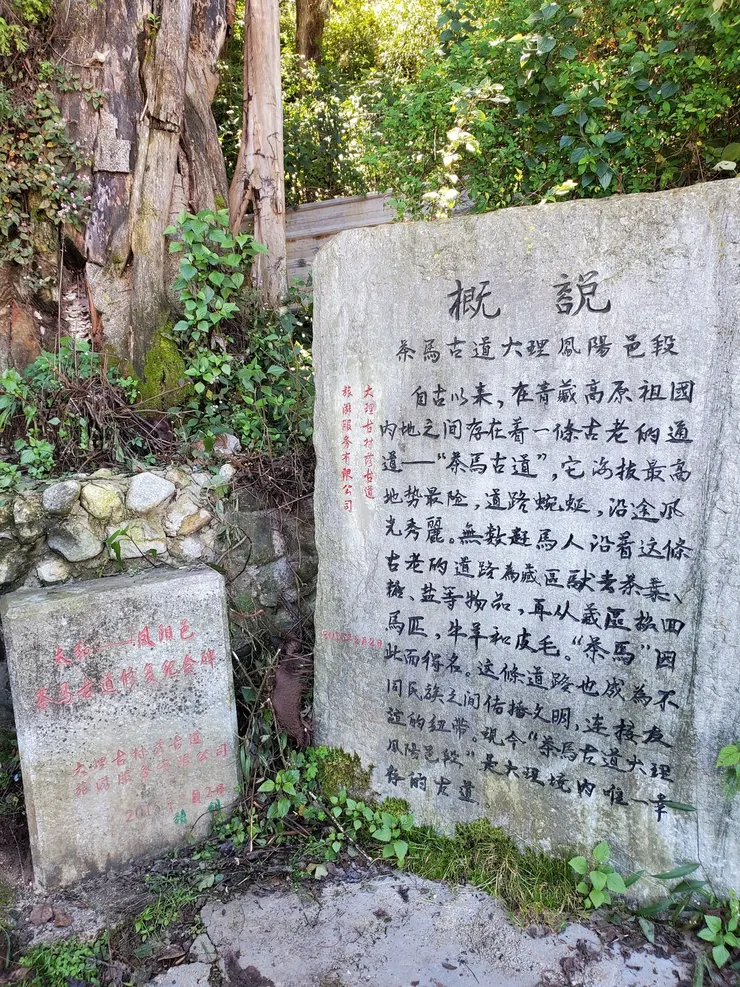 概説
茶馬古道大理鳳陽邑段
自古以来，在青藏高原祖國
内地之间存在着一條古老的通
道——“茶马古道”，它海拔最高
地势最险，道路蜿蜒，沿途风
光秀麗。無数赶馬人沿着这條
古老的道路為藏區馱去茶葉、
糖、盐等物品，再从藏區換回
馬匹，牛羊和皮毛。“茶馬”因
此而得名。这條道路也成為不
同民族之间传播文明，連接友
誼的纽带。现今“茶马古道大理
凤陽邑段”是大理境内唯一幸
存的古道
大理古村茶古道
旅游服务有限公司
太和——凤阳邑
茶马古道修复纪念碑
大理古村茶古道
旅游服务有限公司